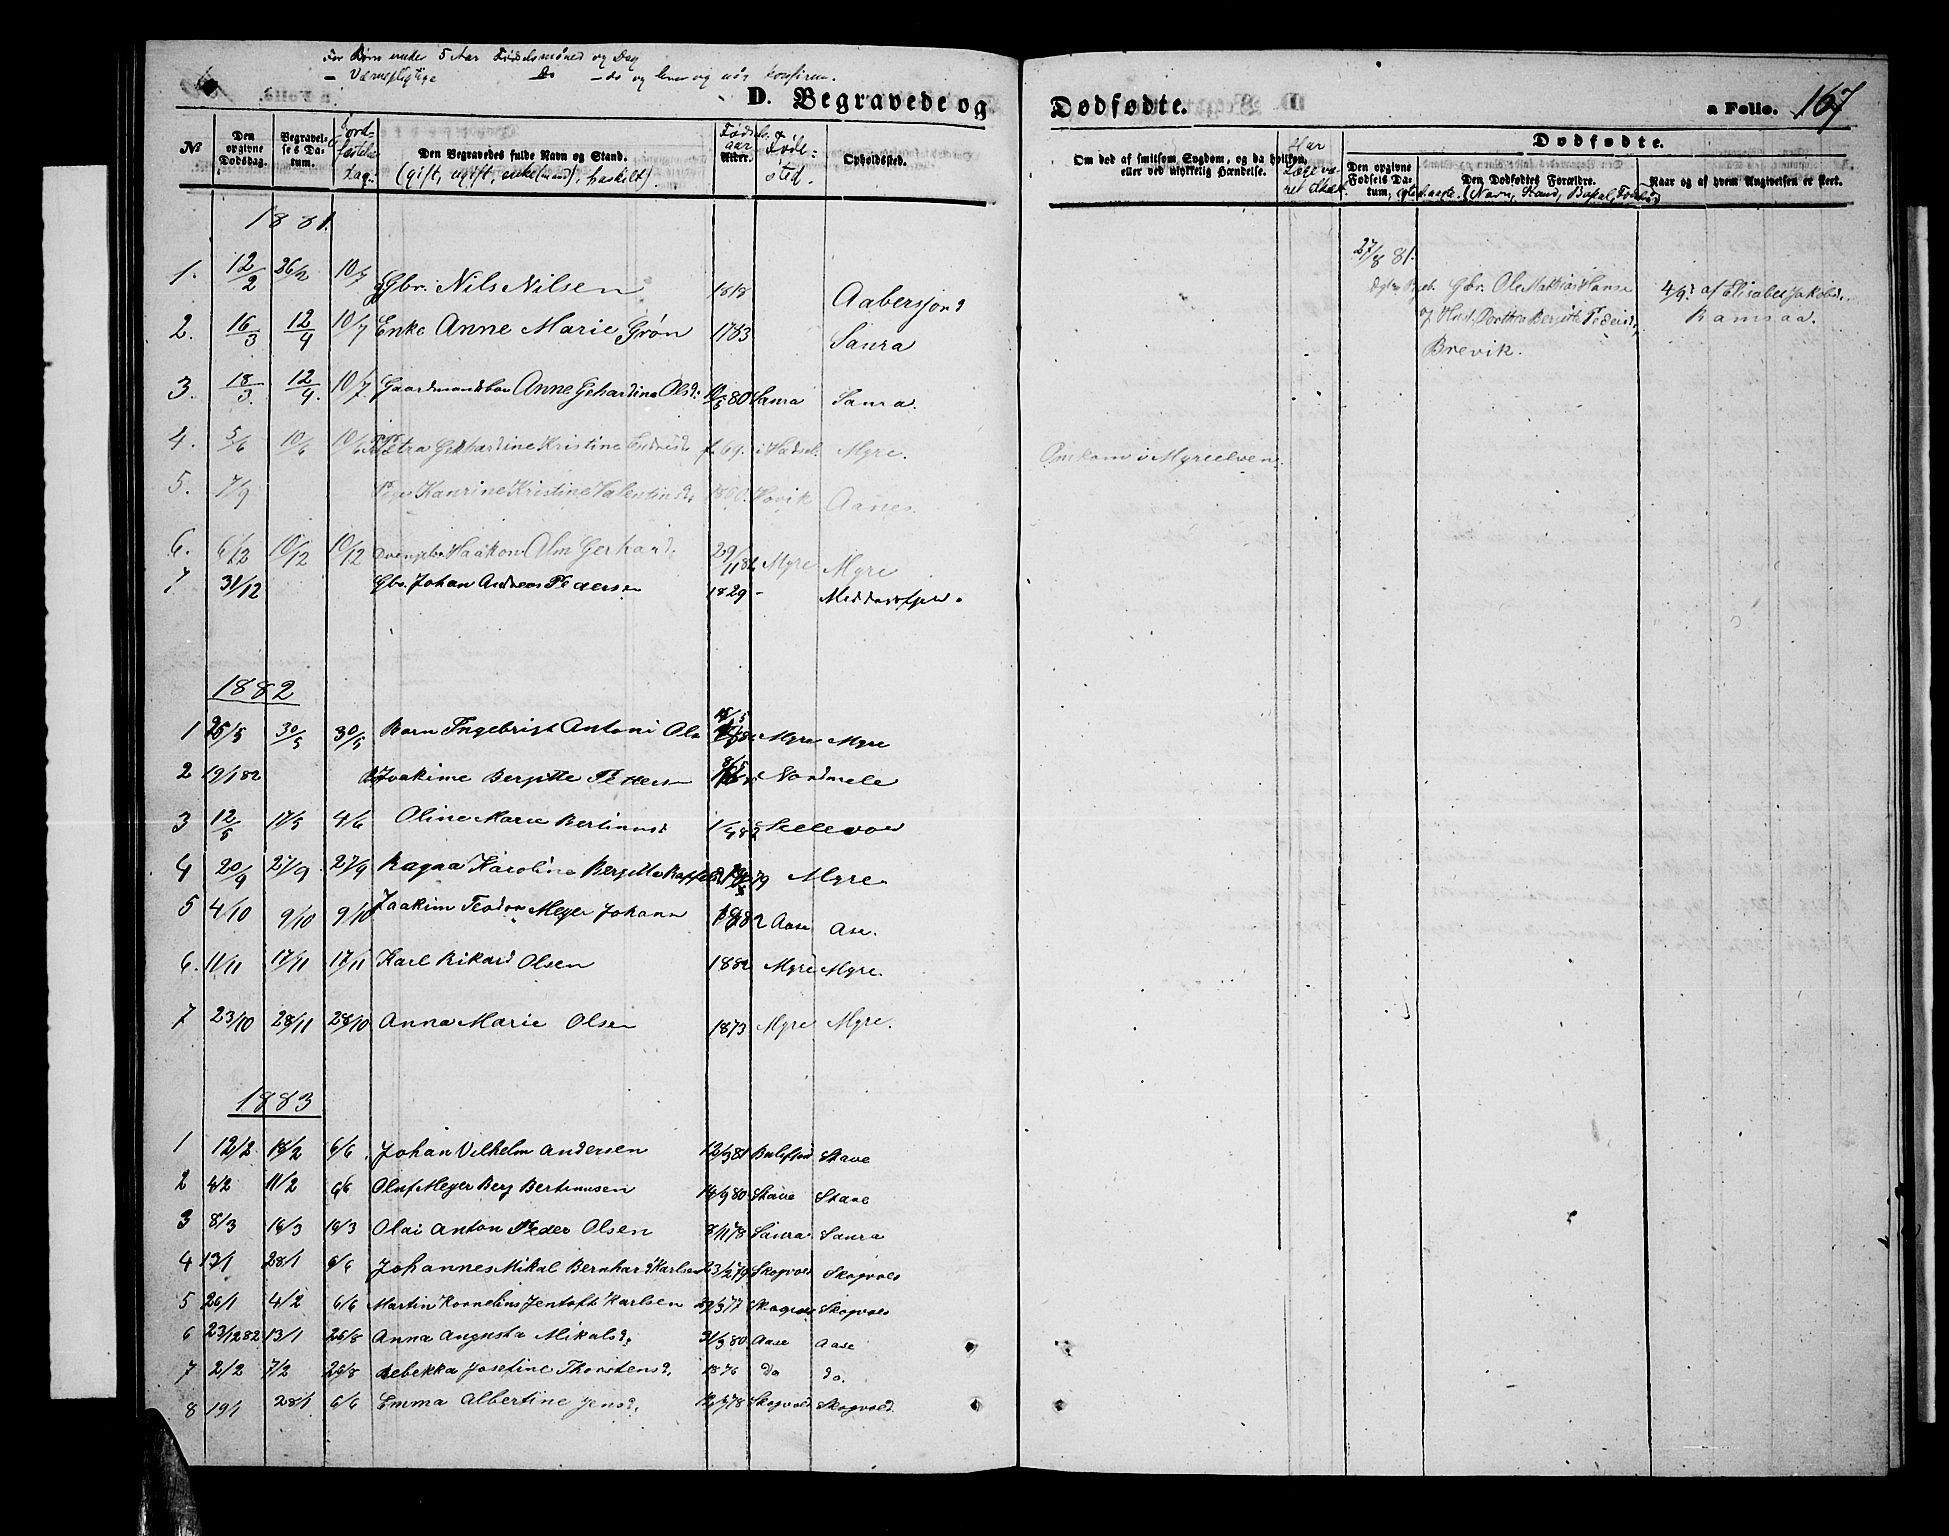 For Børn under 5 Aar Fødselsmåned og Dag
— Værnepligtige Do — do og hvor og når konfirm.
D. Begravede og Dødfødte. a Folio. 167
No
Den opgivne Dødsdag.
Begravelses Datum.
Jordfæstelsesdag.
Den Begravedes fulde Navn og Stand.
(gift, ugift, enke(mand), fraskilt).
Fødselsaar
Alder.
Fødested.
Opholdssted.
Om død af smitsom Sygdom, og da hvilken, eller ved ulykkelig Hændelse.
Har Læge været
Dødfødte.
Den opgivne Fødsels Datum,
Den Dødfødtes Forældre.
(Navn, Stand, Bopæl,
Naar og af hvem Angivelsen er skeet.
1881.
1. 12/2 26/2 10/7 Gbr. Nils Nilsen 1818 Aabersjord
2. 16/3 12/4 10/7 Enke Anne Marie Grøn 1783 Saura
3. 18/3 12/4. 10/7 Anne Gehardina Olsd. 80 Saura Saura.
4. 5/6 10/6 10/6 Petra Gerhardine Kristine f. 69. i Hadsel. Myre. Omkom i Myreelven.
5. 7/9 Pige Kanrine Kristine Valentinsd. Hovik Aanes.
6. 6/12 10/12 10/12 Haakon Alm Gerhard. 29/11 Myre Myre
7 31/12 Gbr. Johan Andreas Pedersen 1829 -
27/8 81.
Gbr. Ole Mathias Hanse
Dorthea Bergitte Pedersd.
Brevik.
4/9 af Elisabet Jakobs.
Ramsaa.
1882
1 25/5 30/5 30/5 Barn Ingebrigt Antoni Ols Myre Myre
2 19/1 82 Joakime Bergitte Nordmele
3 12/5 17/5 4/6 Oline Marie Bertinusd
4 20/9 27/9 27/9 Ragna Karoline Bergitte 79 Myre
5 4/10 9/10 9/10 Joakim Teodor Meyer Johann 1882 Aase Ase.
6. 11/11 17/11 17/11 Karl Rikard Olsen 1882 Myre Myre.
7 23/10 28/11 28/10 Anna Marie Olsen 1873 Myre Myre.
1883
1 12/2 18/2 6/6. Johan Vilhelm Andersen 12/9 81 Stave
2 4/2 11/2 6/6 Oluf Meyer Berg Bertinusen 14/9 80 Stave Stave
3 8/3 16/3 16/3 Olai Anton Peder Olsen 8/11 78 Saura Saura
4 13/1 28/1 6/6 Johannes Mikal Bernhard Karlsen 23/12 79 Skogvold Skogvold
5 26/1 4/2 6/6 Martin Kornelius Jentoft Karlsen 77 Skogvold Skogvold
6 23/12 82 13/1 26/8 Anna Augusta Mikalsd. 31/3 80 Aase Aase
7 2/2 7/2 26/8 Rebekka Josefine Thorstensd. 1876 do do.
8 19/1 28/1 6/6 Emma Albertine Jensd. 78 Skogvold Skogvold